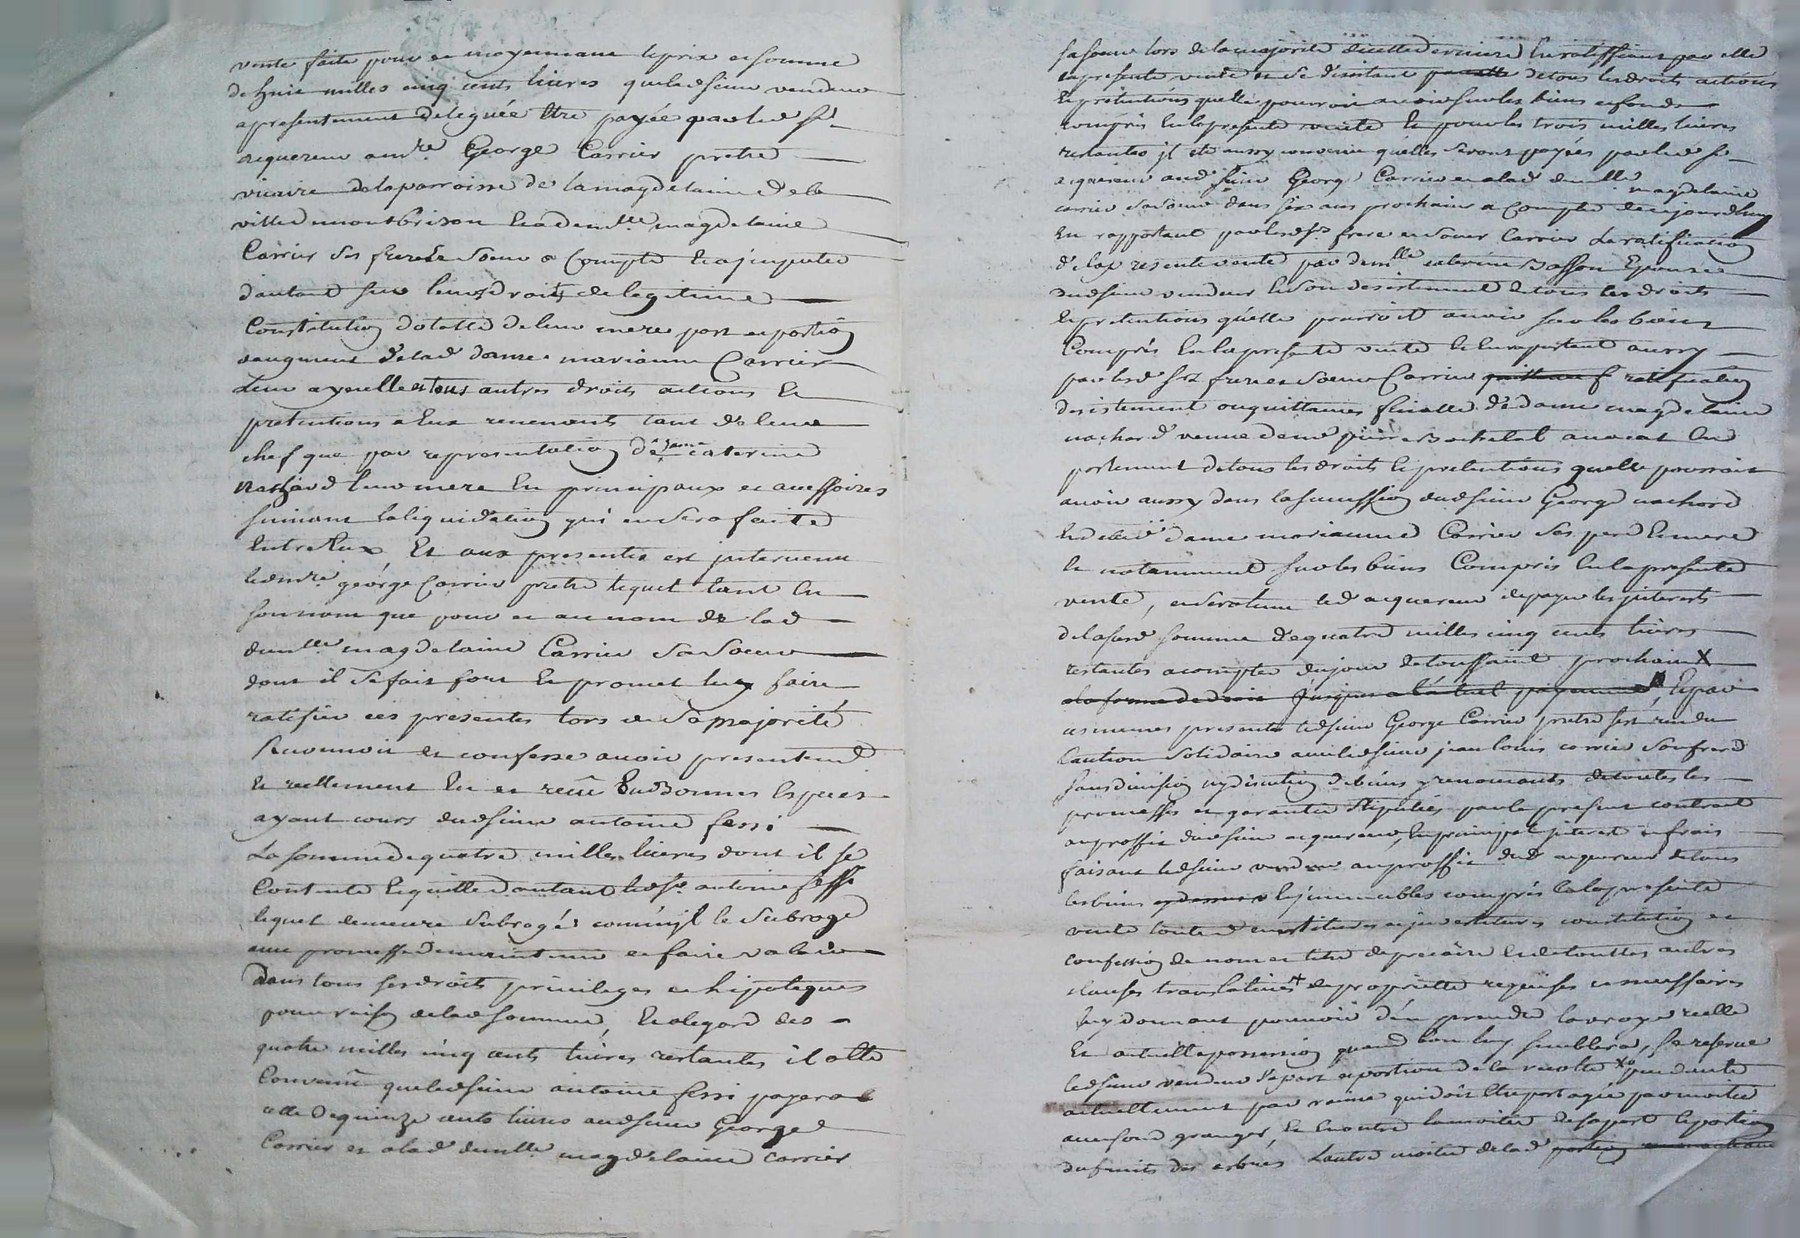 vente faite pour et moyennant le prix et somme
de huit milles cinq cents livres que led sieur vendeur
a presentement deleguée etre payée par led sr
acquereur a mre George Carrier pretre
vicaire de la parroisse de la magdelaine de la
ville de montbrison et a demlle magdelaine
Carrier ses frere et soeur a Compte et a imputer
d'autant sur leurs droits de legitime
Constitution dotalle de leur mere part et portion
daugment de lad dame marianne Carrier
leur ayeulle et tous autres droits actions et
pretentions a eux revenants tant de leur
chef que par representation de dame caterine
nachard leur mere en principaux et accessoires
suivant la liquidation qui en sera faitte
entre eux Et aux presentes est intervenu
led mre george Carrier pretre lequel tant en
son nom que pour et au nom de lad
demlle magdelaine Carrier sa soeur
dont il se fait fort et promet luy faire
ratifier ces presentes lors de sa majorité
reconnoit et confesse avoir presentemt
et reellement eu et receu en Bonnes especes
ayant cours dud sieur antoine fessi
La somme de quatre milles livres dont il se
Contente et quitte d'autant led sr antoine fessi
lequel demeure subrogé comme il le subroge
avec promesse de maintenir et faire valoir
Dans tous ses droits privileges et hipoteques
pour raison de lad somme, Et a legard des
quatre milles cinq cents livres restantes il a etté
Convenu que led sieur antoine fessi payera
celle de quinze cents livres aud sieur George
Carrier et a lad demlle magdelaine carrier
sa soeur lors de la majorité de cette derniere en ratiffiant par elle
la presente vente et se desistant de tous les droits actions
et prétentions quelle pourroit avoir sur les biens et fonds
compris en la presente vente et pour les trois milles livres
restantes il a eté aussy convenu quelles seront payées par led sr
acquereur aud sieur George Carrier et a lad demlle magdelaine
carrier sa soeur dans six ans prochains a Compter de ce jourdhuy
En rapportant par lesd srs frere et soeur Carrier la ratification
de la presente vente par demlle caterine Basson Epouse
dud sieur vendeur et son desistement de tous les droits
et pretentions quelle pourroit avoir sur les biens
Compris en la presente vente et en raportant aussy
par lesd srs frere et soeur Carrier quittance ratification
desistement ou quittances finalle de dame magdelaine
nachard veuve de me pierre Bachelat avocat en
parlement de tous les droits et pretentions quelle pourroit
avoir aussy dans la succession dud sieur George nachard
et de dame marianne Carrier ses pere et mere
et notamment sur les biens Compris en la presente
vente, et sera tenu led acquereur de payer les interets
de la susd somme de quatre milles cinq cents livres
restantes a compter du jour de toussaint prochain X
a la forme de droit jusques a l'actuel payement, Et par
ces memes presentes led sieur George Carrier pretre s'est rendu
Caution solidaire avec led sieur jean louis carrier son frere
sans division ny discution de biens y renonceants de toutes les
promesses et garanties stipulées par le present contract
au proffit dud sieur acquereur, en principal interet et frais
faisant led sieur vendeur au proffit dud acquereur de tous
les biens et jmmeubles compris en la presente
vente toutte et investitures constitution et
confession de nom et titre de precaire et de touttes autres
clauses translatives + de proprietté requises et necessaires
luy donnant pouvoir d'en prendre la vraye reelle
Et actuelle possession quand bon luy semblera, se reserve
led sieur vendeur sa part et portion de la recolte X pendante
actuellement par racine qui doit etre partagée par moitié
avec son granger, Et en outre la moitié de sa part et portion
du fruits des arbres L'autre moitié de lad portion